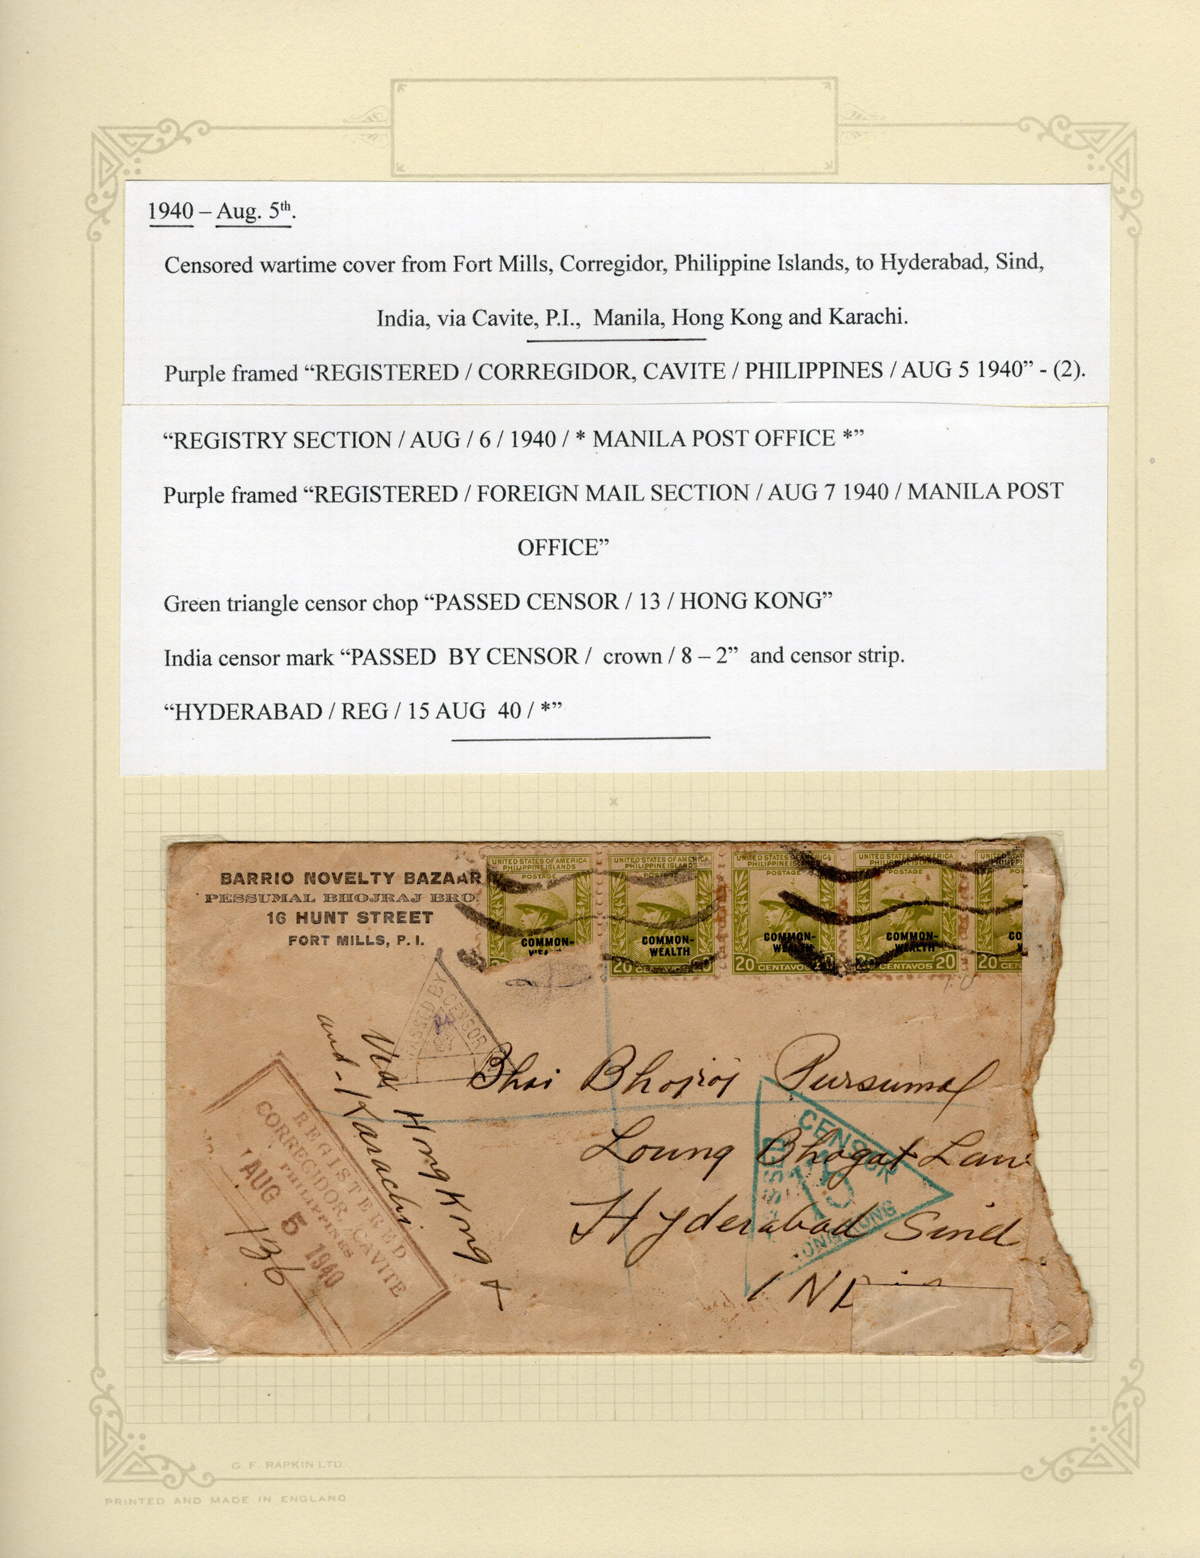 1940 – Aug. 5th.
Censored wartime cover from Fort Mills, Corregidor, Philippine Islands, to Hyderabad, Sind,
India, via Cavite, P.I., Manila, Hong Kong and Karachi.
Purple framed “REGISTERED / CORREGIDOR, CAVITE / PHILIPPINES / AUG 5 1940” - (2).
“REGISTRY SECTION / AUG / 6 / 1940 / * MANILA POST OFFICE *”
Purple framed “REGISTERED / FOREIGN MAIL SECTION / AUG 7 1940 / MANILA POST
OFFICE”
Green triangle censor chop “PASSED CENSOR / 13 / HONG KONG”
India censor mark “PASSED BY CENSOR / crown / 8 – 2” and censor strip.
“HYDERABAD / REG / 15 AUG 40 / *”
BARRIO NOVELTY BAZAAR
PESSUMAL BHOJRAJ BRO.
16 HUNT STREET
FORT MILLS, P. I.
UNITED STATES OF AMERICA
PHILIPPINE ISLANDS
POSTAGE
COMMON-
UNITED STATES OF AMERICA
PHILIPPINE ISLANDS
POSTAGE
COMMON-
WEALTH
20
UNITED STATES OF AMERICA
PHILIPPINE ISLANDS
POSTAGE
COMMON-
WEALTH
20 CENTAVOS 20
UNITED STATES OF AMERICA
PHILIPPINE ISLANDS
POSTAGE
COMMON-
WEALTH
CENTAVOS 20
20
PASSED BY CENSOR
Via Hong Kong +
and Karachi
Bhai Bhojraj Pursumal
Loung Bhagat Lane
Hyderabad Sind
CENSOR
REGISTERED
CORREGIDOR, CAVITE
PHILIPPINES
AUG 5 1940
136
G. F. RAPKIN LTD.
PRINTED AND MADE IN ENGLAND